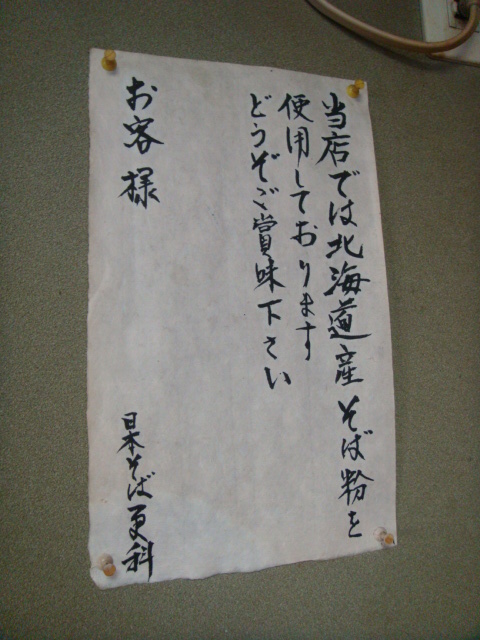 当店では北海道産そば粉を
使用しております
どうぞご賞味下さい
お客様
日本そば更科